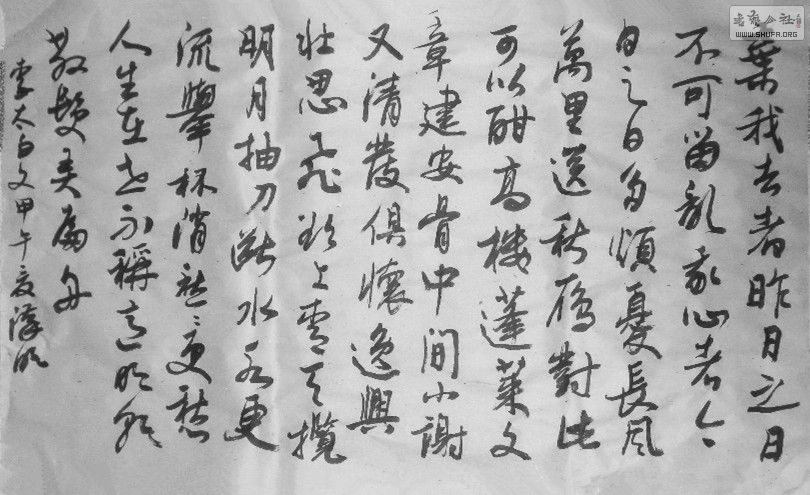 棄我去者昨日之日
不可留乱我心者今
日之日多煩憂長風
萬里送秋雁對此
可以酣高樓蓬萊文
章建安骨中間小謝
又清發俱懷逸興
壯思飛欲上青天攬
明月抽刀斷水水更
流舉杯消愁々更愁
人生在世不稱意明朝
散髮弄扁舟
李太白文甲午夏
書法公社
WWW.SHUFA.ORG